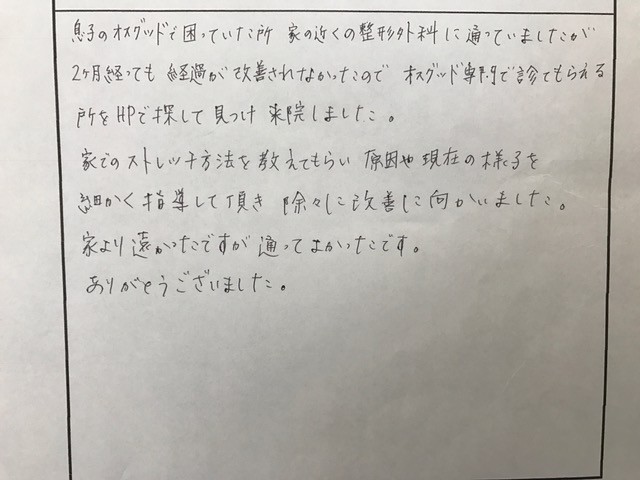 息子のオスグッドで困っていた所 家の近くの整形外科に通っていましたが
2ヶ月経っても 経過が改善されなかったので オスグッド専門で診てもらえる
所をHPで探して見つけ 来院しました。
家でのストレッチ方法を教えてもらい 原因や現在の様子を
細かく指導して頂き 除々に改善に向かいました。
家より遠かったですが通ってよかったです。
ありがとうございました。